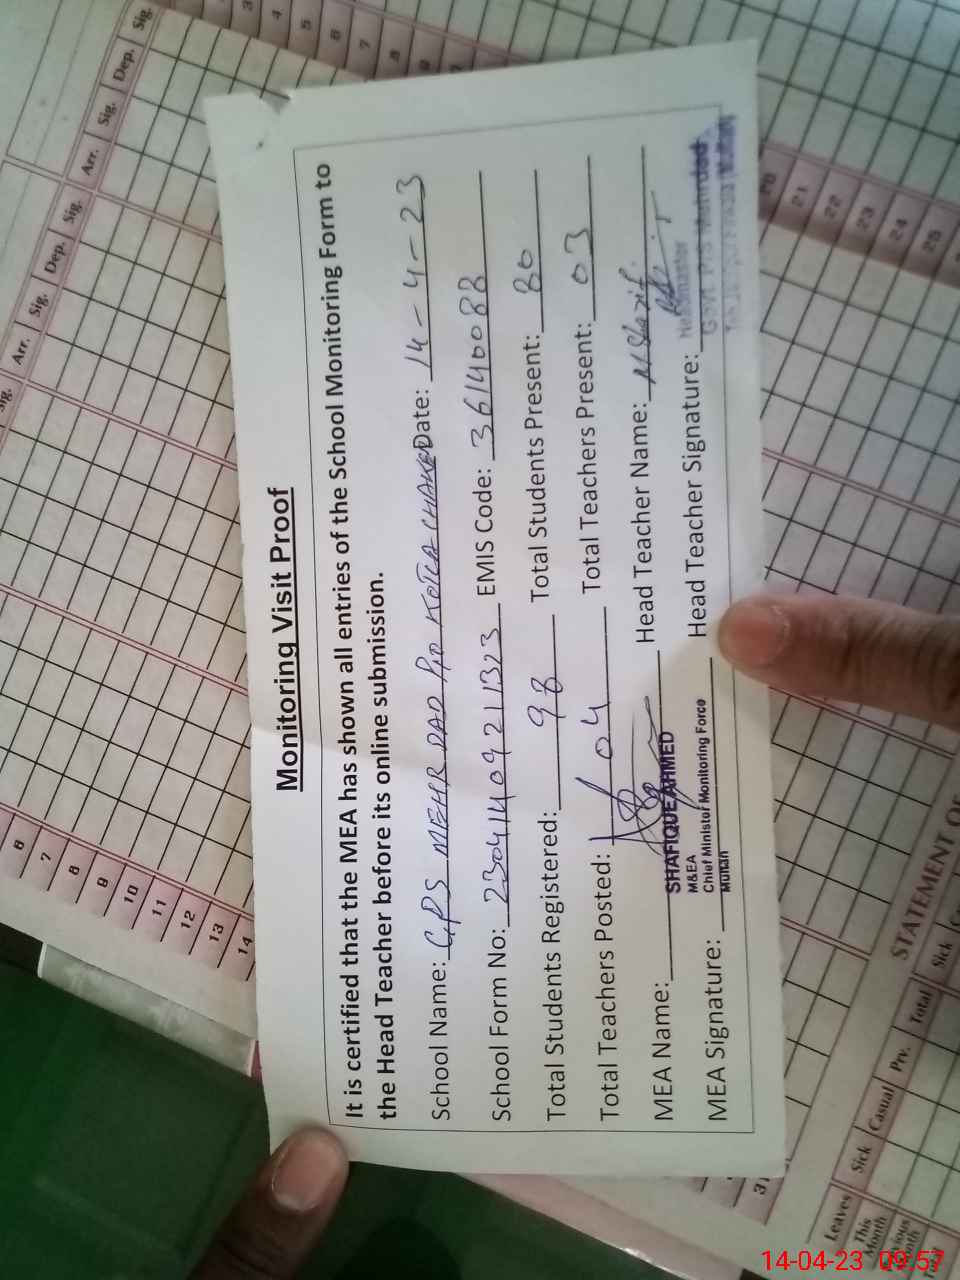 Monitoring Visit Proof
It is certified that the MEA has shown all entries of the School Monitoring Form to
the Head Teacher before its online submission.
School Name: GPS MEHR DAD P/O KOTLA CHAKED Date: 14-4-23
School Form No: 23041409211323 EMIS Code: 36140088
Total Students Registered: 98 Total Students Present: 80
Total Teachers Posted: 04 Total Teachers Present: 03
MEA Name: SHAFIQUE AHMED Head Teacher Name: M Shafiq
M&EA
Chief Minister Monitoring Force
Multan
MEA Signature: Head Teacher Signature:
Headmaster
Govt. P/S Mehrdad
Sig. Arr. Sig. Dep. Sig. Arr. Sig. Dep. Sig.
6
7
8
9
10
11
12
13
14
3
4
5
6
7
8
9
20
21
22
23
24
25
31
STATEMENT OF
Leaves Sick Casual Prv. Total Sick
This
Month
Total
14-04-23 09:57